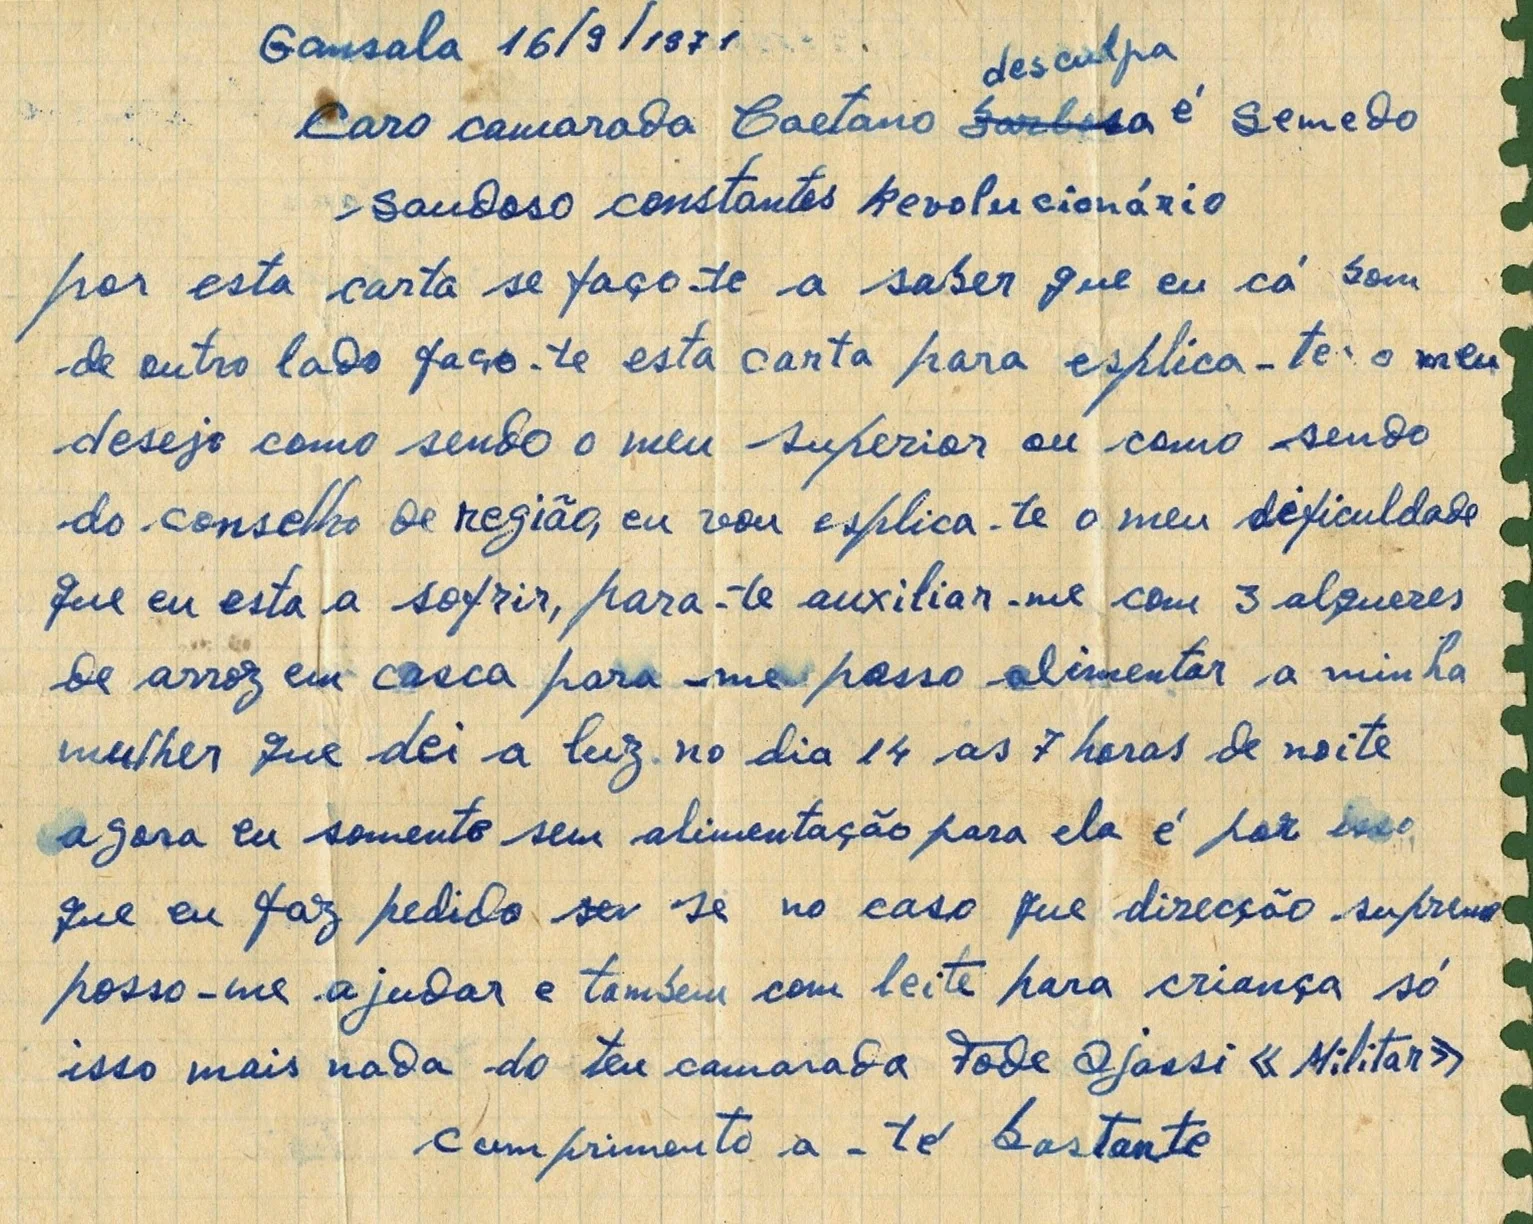 Gansala 16/9/1971
desculpa
Caro camarada Caetano Barbosa é Semedo
Saudoso constantes Revolucionário
por esta carta se faço-te a saber que eu cá bom
de outro lado faço-te esta carta para esplica-te o meu
desejo como sendo o meu superior ou como sendo
do conselho de região, eu vou esplica-te o meu dificuldade
que eu esta a sofrir, para-te auxiliar-me com 3 alqueres
de arroz em casca para-me posso alimentar a minha
mulher que dei a luz no dia 14 as 7 horas de noite
agora eu somente sem alimentação para ela é por isso
que eu faz pedido ser se no caso que direcção suprema
posso-me ajudar e tambem com leite para criança só
isso mais nada do teu camarada Fode Djassi «Militar»
comprimento a-te bastante